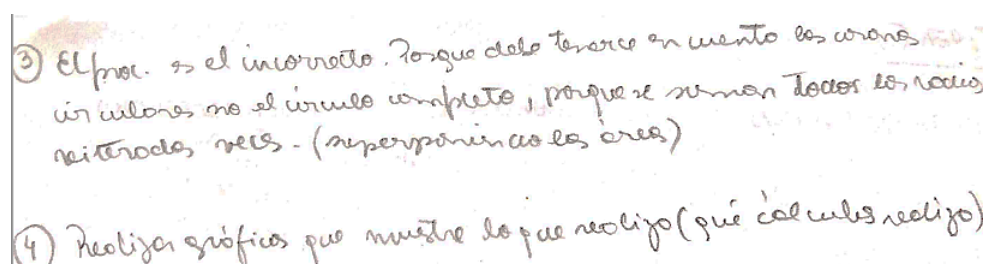 ③ El proc. es el incorrecto. Porque debe tenerce en cuenta las coronas
circulares no el circulo completo, porque se suman todos los radios
reiteradas veces - (superponiendo las áreas)
④ Realizar gráficos que muestre lo que realizo (qué cálculos realizo)